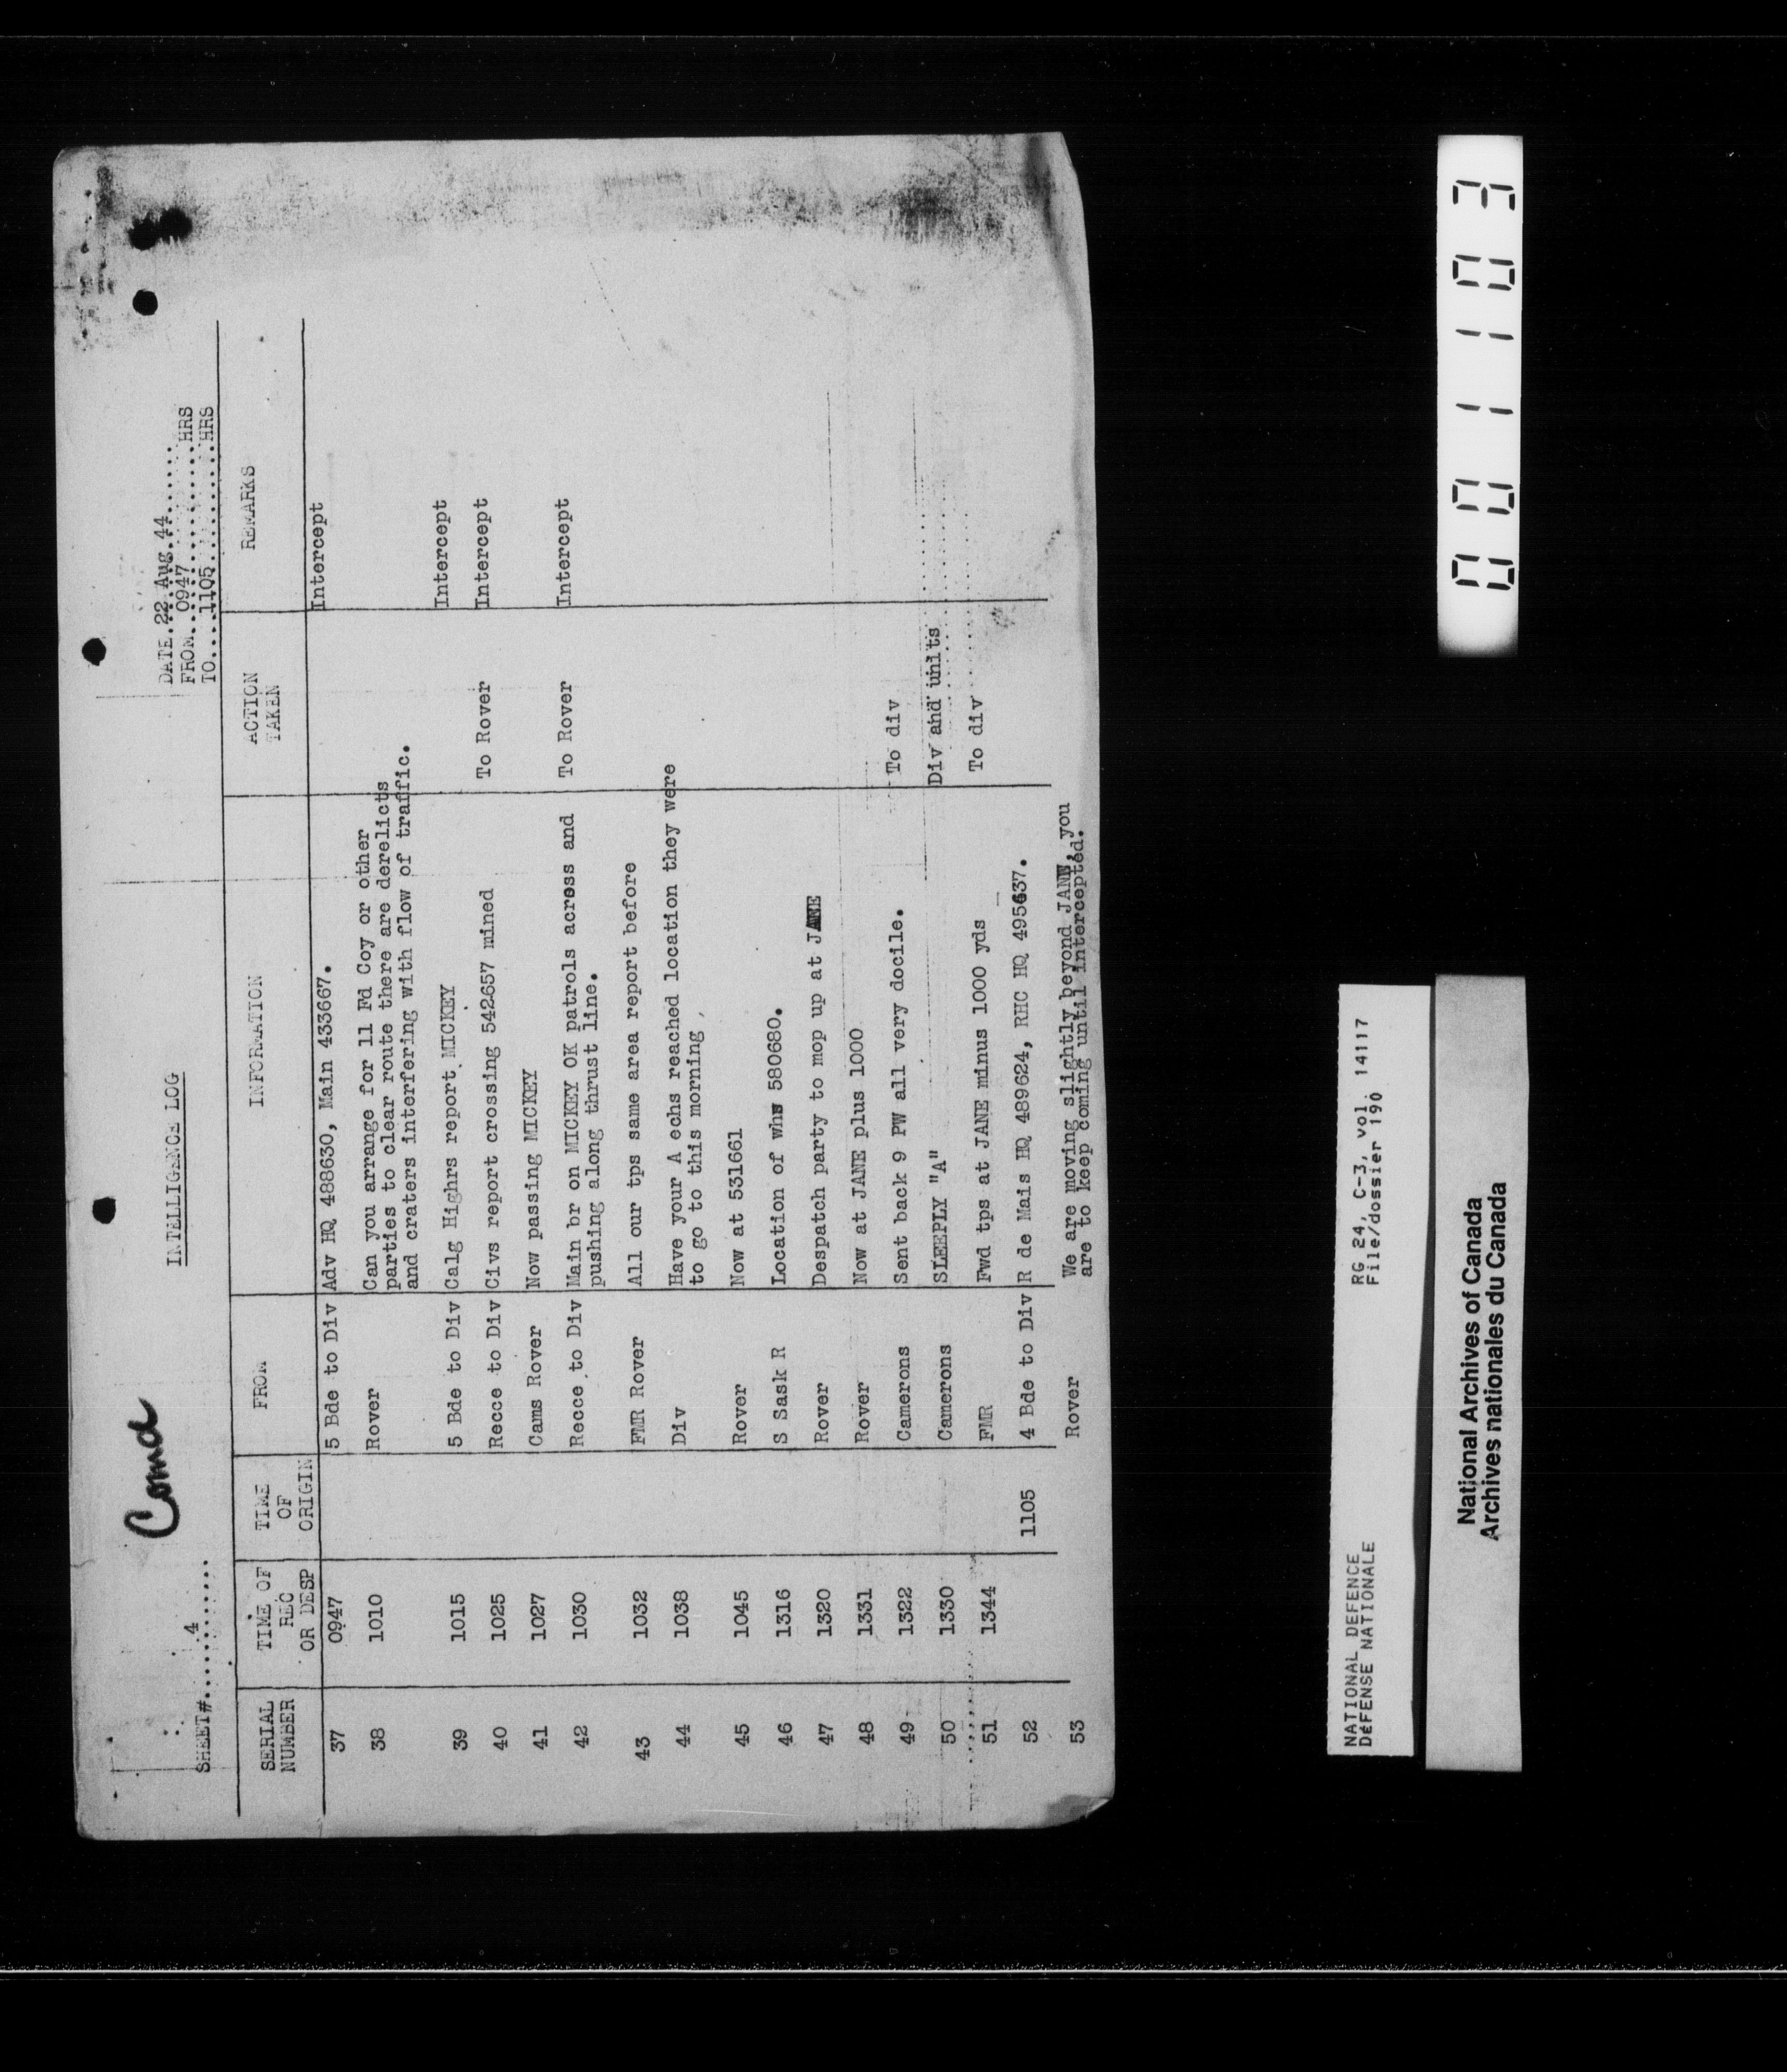 Comd
SHEET#....4..........
INTELLIGENCE LOG
DATE.22 Aug.44.......
FROM..0947..........HRS
TO....1105..........HRS
SERIAL NUMBER TIME OF REC OR DESP TIME OF ORIGIN FROM INFORMATION ACTION TAKEN REMARKS
37 0947 5 Bde to Div Adv HQ 488630, Main 433667. Intercept
38 1010 Rover Can you arrange for 11 Fd Coy or other
parties to clear route there are derelicts
and craters interfering with flow of traffic.
39 1015 5 Bde to Div Calg Highrs report MICKEY Intercept
40 1025 Recce to Div Civs report crossing 542657 mined To Rover Intercept
41 1027 Cams Rover Now passing MICKEY
42 1030 Recce to Div Main br on MICKEY OK patrols acress and To Rover Intercept
pushing along thrust line.
43 1032 FMR Rover All our tps same area report before
44 1038 Div Have your A echs reached location they were
to go to this morning
45 1045 Rover Now at 531661
46 1316 S Sask R Location of whs 580680.
47 1320 Rover Despatch party to mop up at JANE
48 1331 Rover Now at JANE plus 1000
49 1322 Camerons Sent back 9 PW all very docile. To div
50 1330 Camerons SLEEPLY "A" Div and units
51 1344 FMR Fwd tps at JANE minus 1000 yds To div
52 1105 4 Bde to Div R de Mais HQ 489624, RHC HQ 495637.
53 Rover We are moving slightly beyond JANE, you
are to keep coming until intercepted.
NATIONAL DEFENCE RG 24, C-3, vol. 14117
DéFENSE NATIONALE File/dossier 190
National Archives of Canada
Archives nationales du Canada
001103